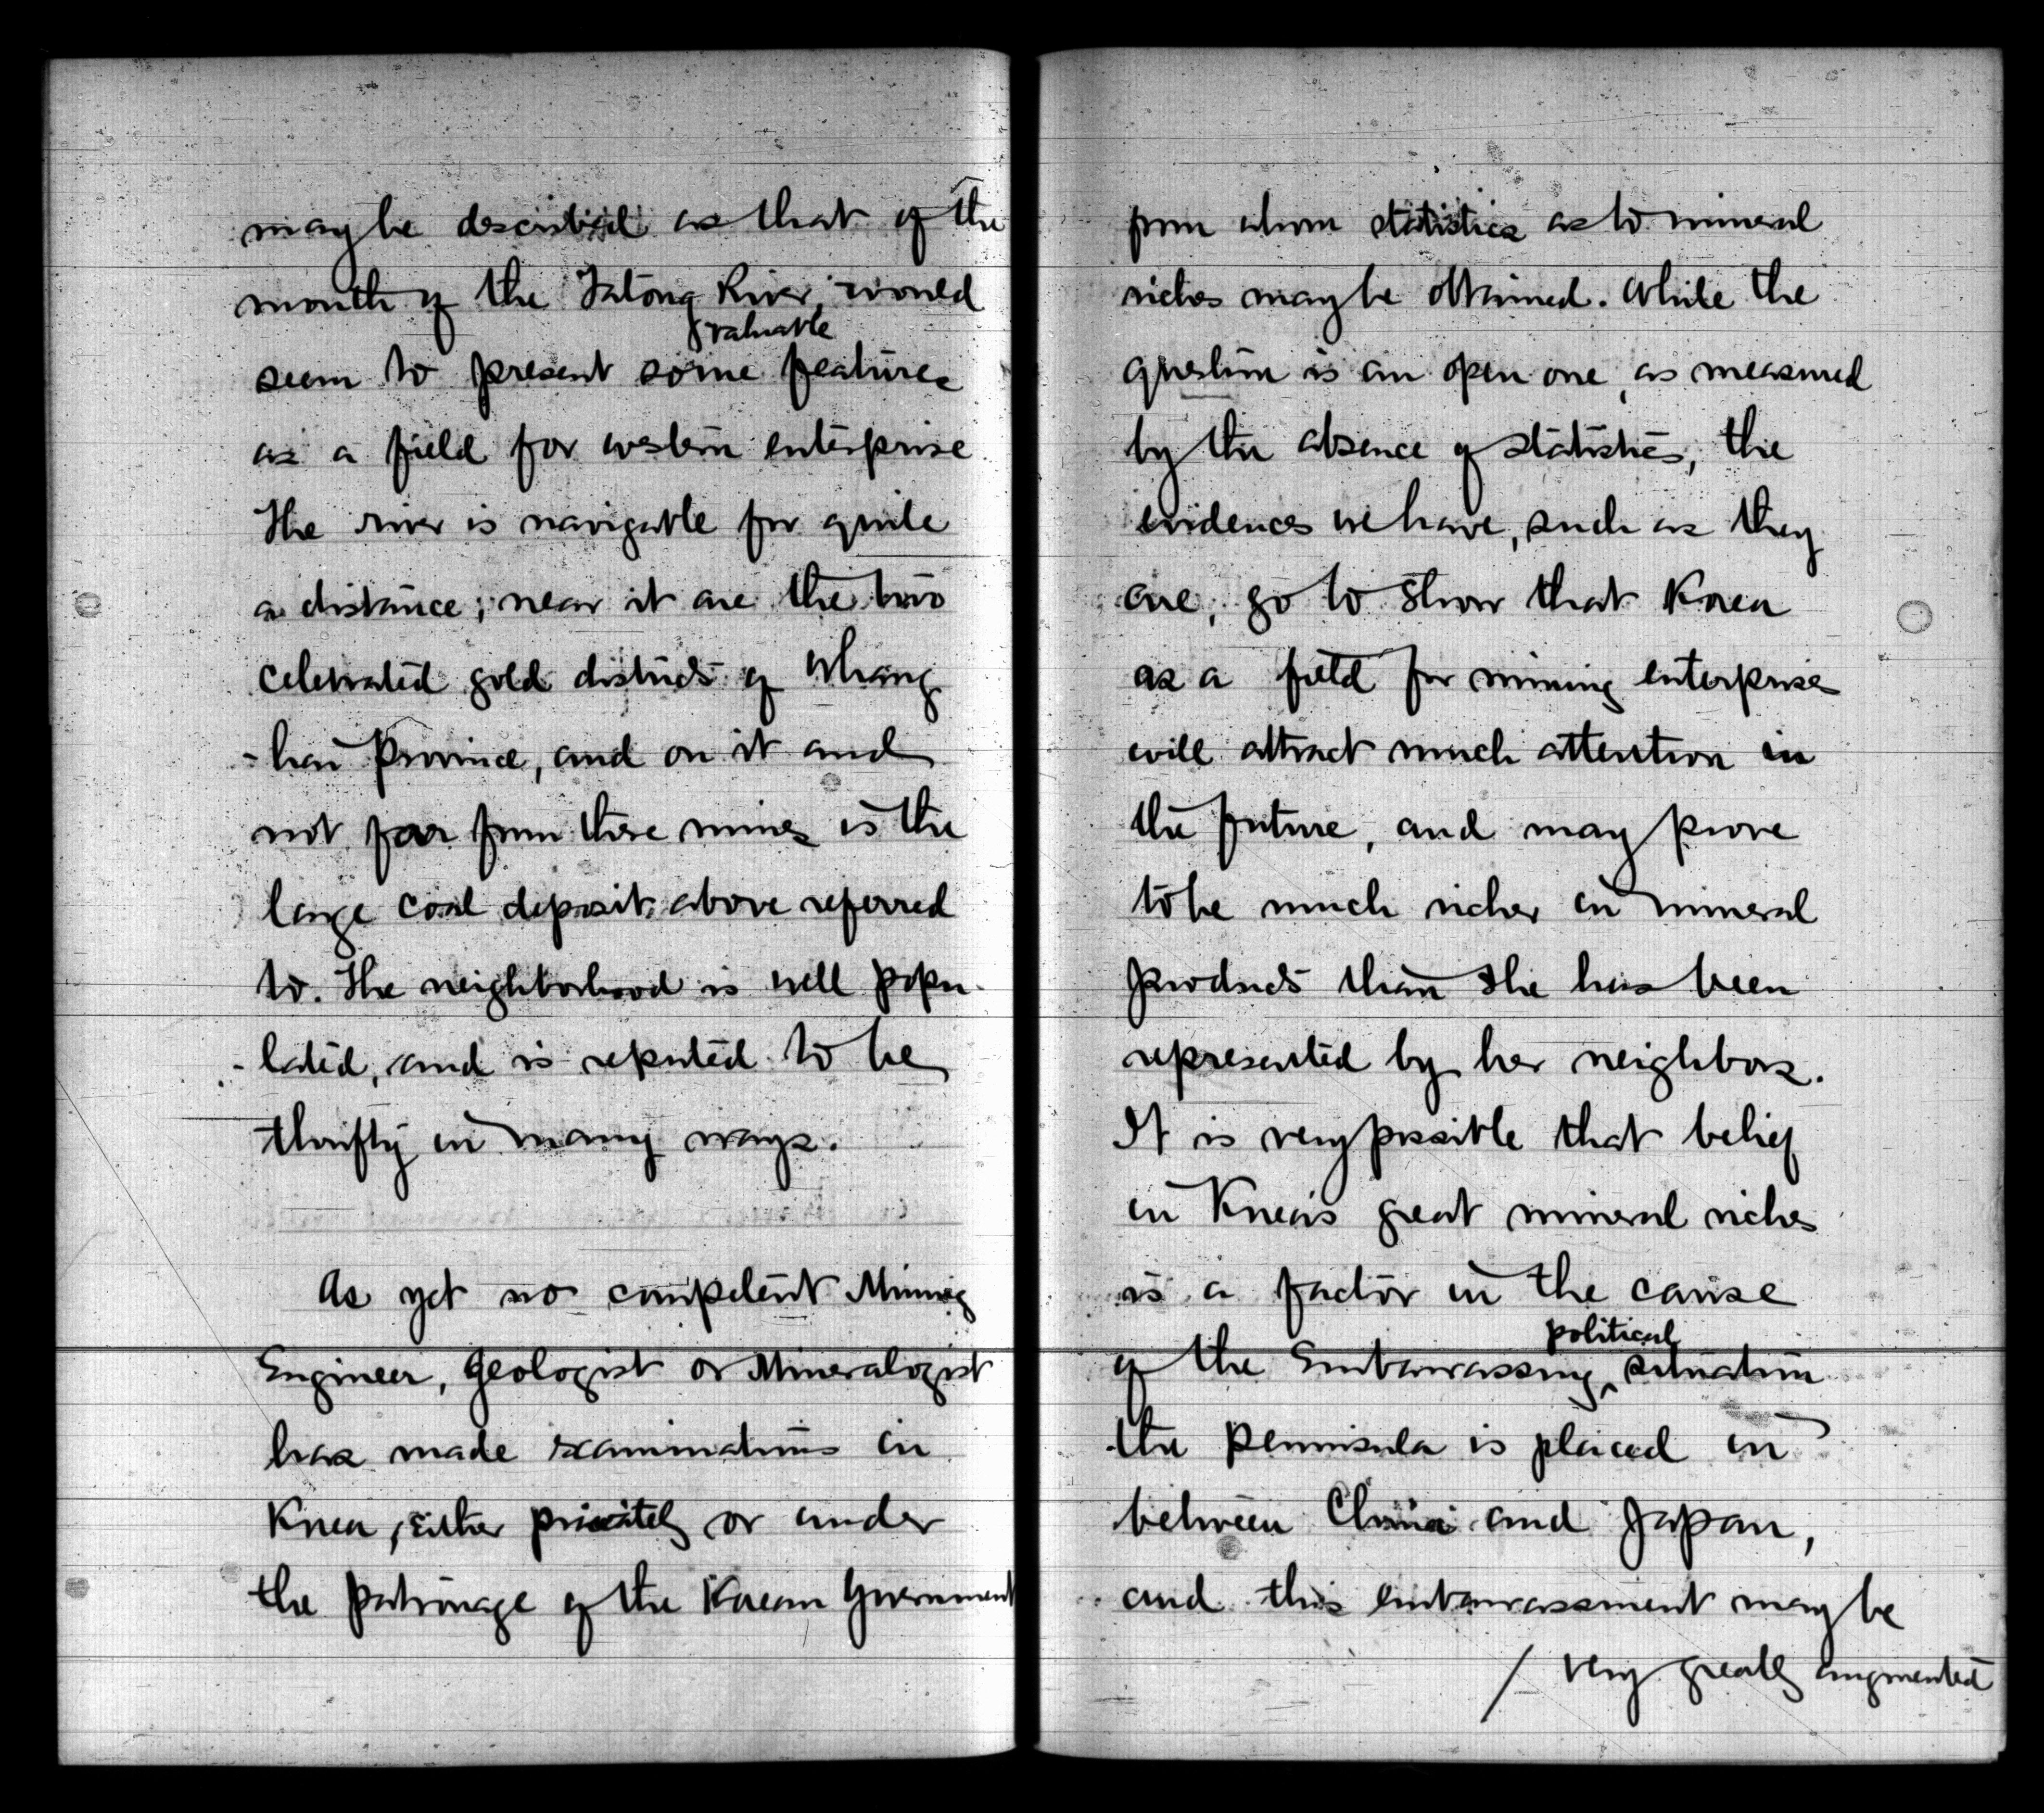 may be described as that of the
mouth of the Tatong River, would
valuable
seem to present some features
as a field for western enterprise.
The river is navigable for quite
a distance; near it are the two
celebrated gold districts of Whang
-hai Province, and on it and
not far from these mines is the
large coal deposit above referred
to. The neighborhood is well popu-
-lated, and is reputed to be
thrifty in many ways.
As yet no competent Mining
Engineer, Geologist or Mineralogist
has made examinations in
Korea, either privately or under
the patronage of the Korean Government
from whom statistics as to mineral
riches may be obtained. While the
question is an open one, as measured
by the absence of statistics, the
evidences we have, such as they
are, go to show that Korea
as a field for mining enterprises
will attract much attention in
the future, and may prove
to be much richer in mineral
products than she has been
represented by her neighbors.
It is very possible that belief
in Korea's great mineral riches
is a factor in the cause
political
of the Embarrassing ^ situation
the peninsula is placed in
between China and Japan,
and this embarrassment may be
/ very greatly augmented